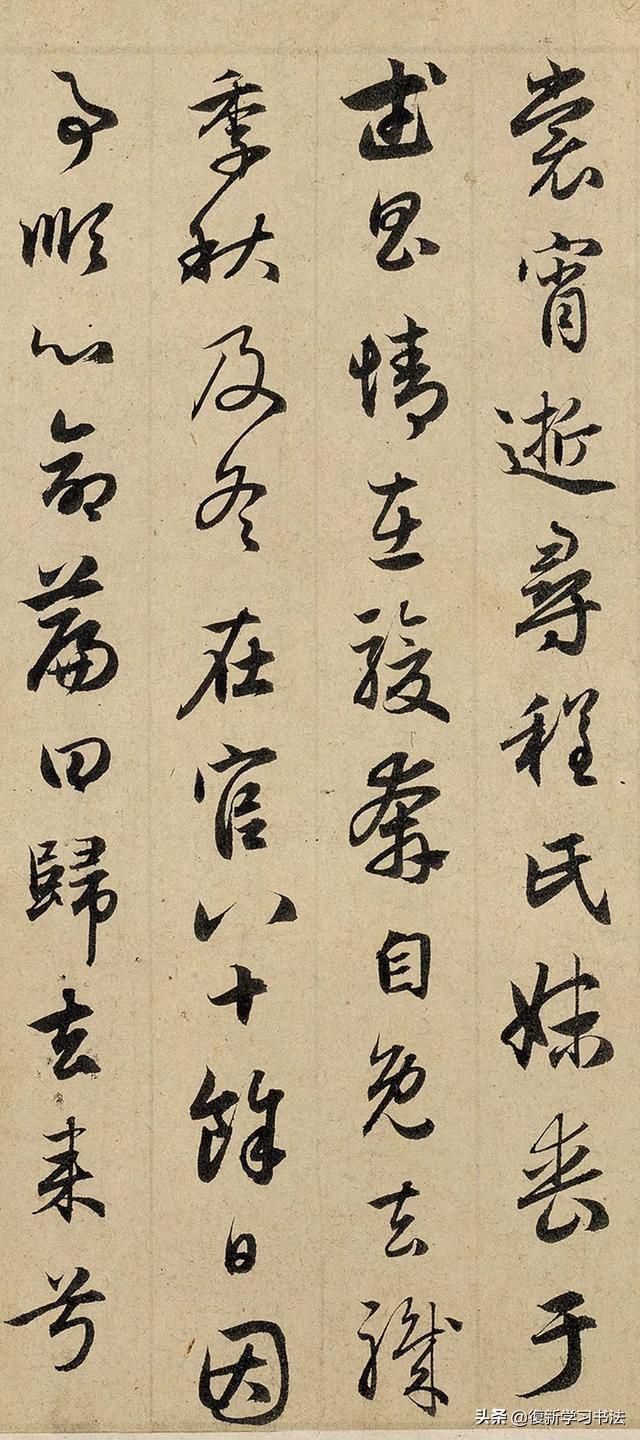 裳宵逝尋程氏妹喪于
武昌情在駿奔自免去職
季秋及冬在官八十餘日因
事順心命篇曰歸去來兮
头条 @復新学习书法